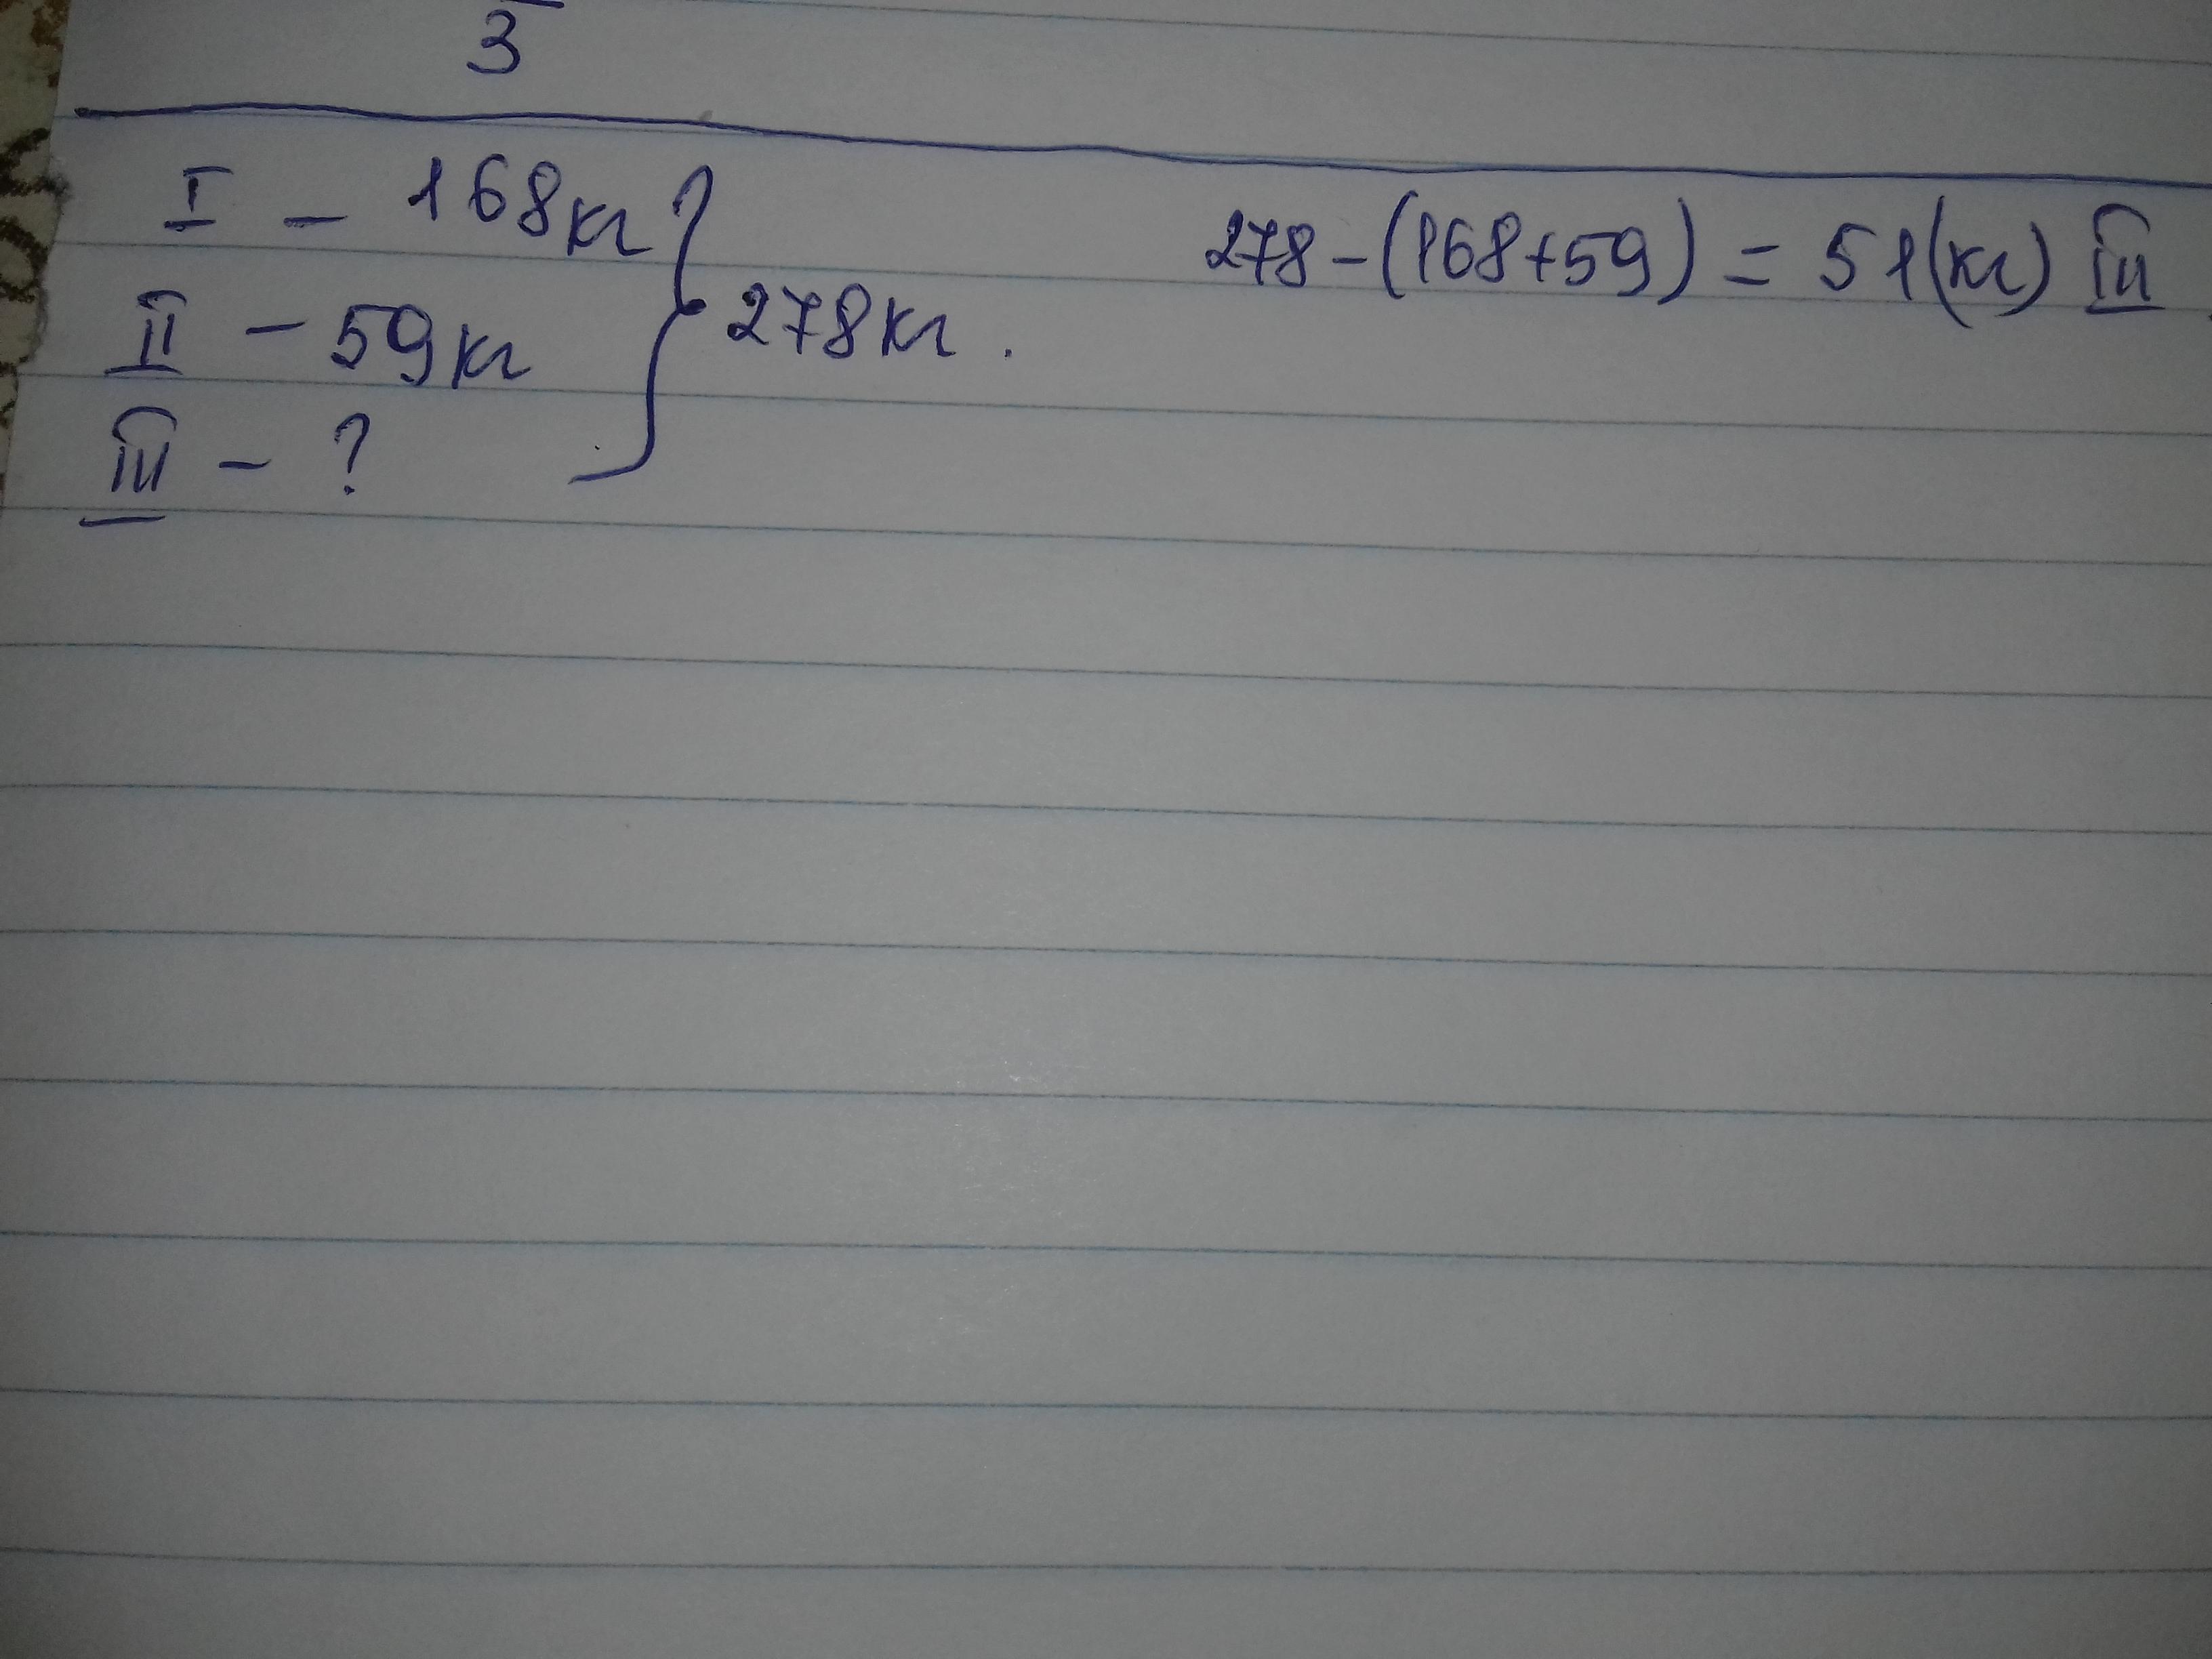 3
I - 168кг
II - 59кг
III - ?
278кг.
278-(168+59) = 51(кг) III